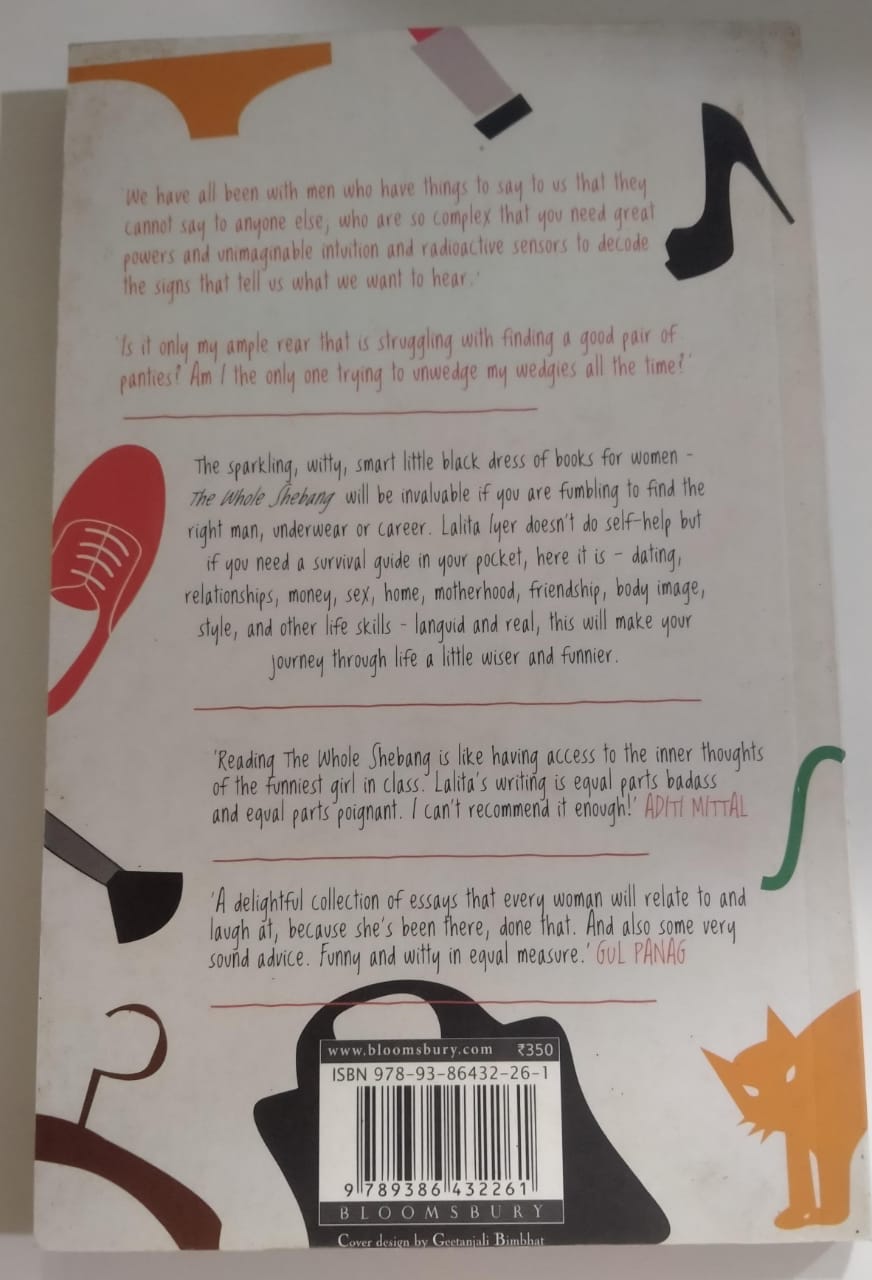 'We have all been with men who have things to say to us that they
cannot say to anyone else, who are so complex that you need great
powers and unimaginable intuition and radioactive sensors to decode
the signs that tell us what we want to hear.'
'Is it only my ample rear that is struggling with finding a good pair of
panties? Am I the only one trying to unwedge my wedgies all the time?'
The sparkling, witty, smart little black dress of books for women –
The Whole Shebang will be invaluable if you are fumbling to find the
right man, underwear or career. Lalita Iyer doesn't do self-help but
if you need a survival guide in your pocket, here it is – dating,
relationships, money, sex, home, motherhood, friendship, body image,
style, and other life skills – languid and real, this will make your
journey through life a little wiser and funnier.
'Reading The Whole Shebang is like having access to the inner thoughts
of the funniest girl in class. Lalita's writing is equal parts badass
and equal parts poignant. I can't recommend it enough!' ADITI MITTAL
'A delightful collection of essays that every woman will relate to and
laugh at, because she's been there, done that. And also some very
sound advice. Funny and witty in equal measure.' GUL PANAG
www.bloomsbury.com ₹350
ISBN 978-93-86432-26-1
9 789386 432261
BLOOMSBURY
Cover design by Geetanjali Bimbhat